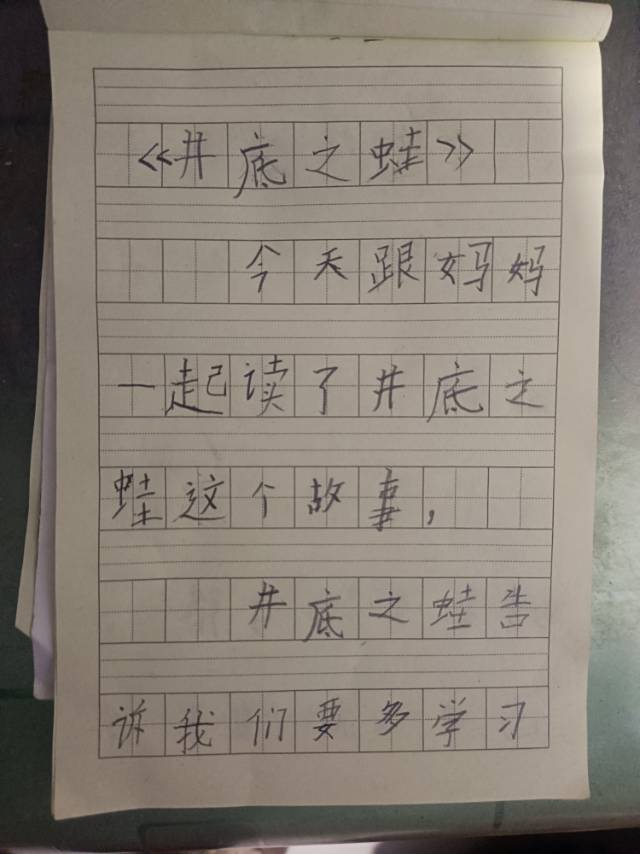 《井底之蛙》
今天跟妈妈
一起读了井底之
蛙这个故事,
井底之蛙告
诉我们要多学习